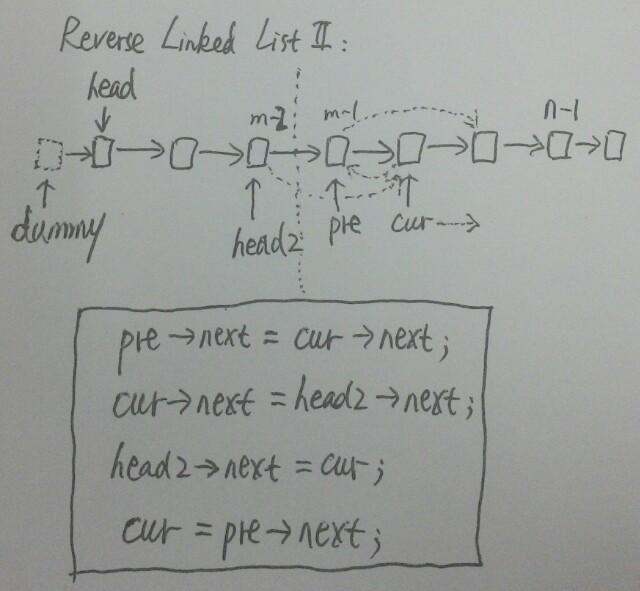 Reverse Linked List II:
head
m-2 m-1 n-1
dummy head2 pre cur
pre→next = cur→next;
cur→next = head2→next;
head2→next = cur;
cur = pre→next;